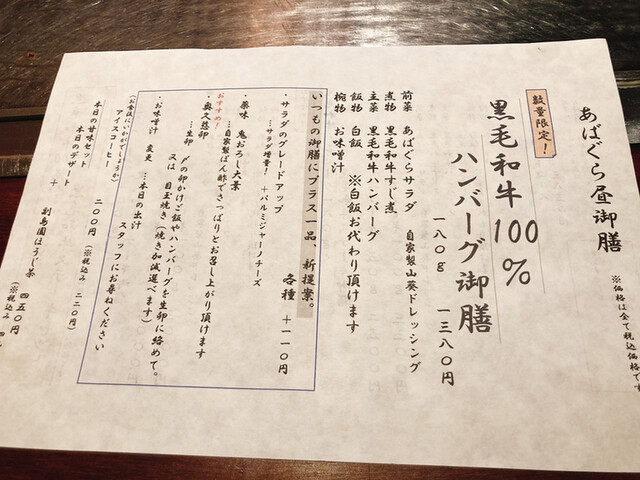 あばぐら昼御膳
※価格は全て税込価格です
数量限定!
黒毛和牛100%
ハンバーグ御膳
一八〇g 一三八〇円
前菜 あばぐらサラダ 自家製山葵ドレッシング
煮物 黒毛和牛すじ煮
主菜 黒毛和牛ハンバーグ
飯物 白飯 ※白飯お代わり頂けます
椀物 お味噌汁
いつもの御膳にプラス一品、新提案。
各種 +一一〇円
・サラダのグレードアップ
…サラダ増量!+パルミジャーノチーズ
・薬味 鬼おろし大葉
…自家製ぽん酢でさっぱりとお召し上がり頂けます
おすすめ!
・奥久慈卵
…生卵 〆の卵かけご飯やハンバーグを生卵に絡めて。
又は 目玉焼き(焼き加減選べます)
・お味噌汁 変更 …本日の出汁
スタッフにお尋ねください
(お食後にいかがでしょうか)
アイスコーヒー 二〇〇円(※税込み 二二〇円)
本日の甘味セット
本日のデザート + 副島園ほうじ茶 四五〇円
(※税込み 四